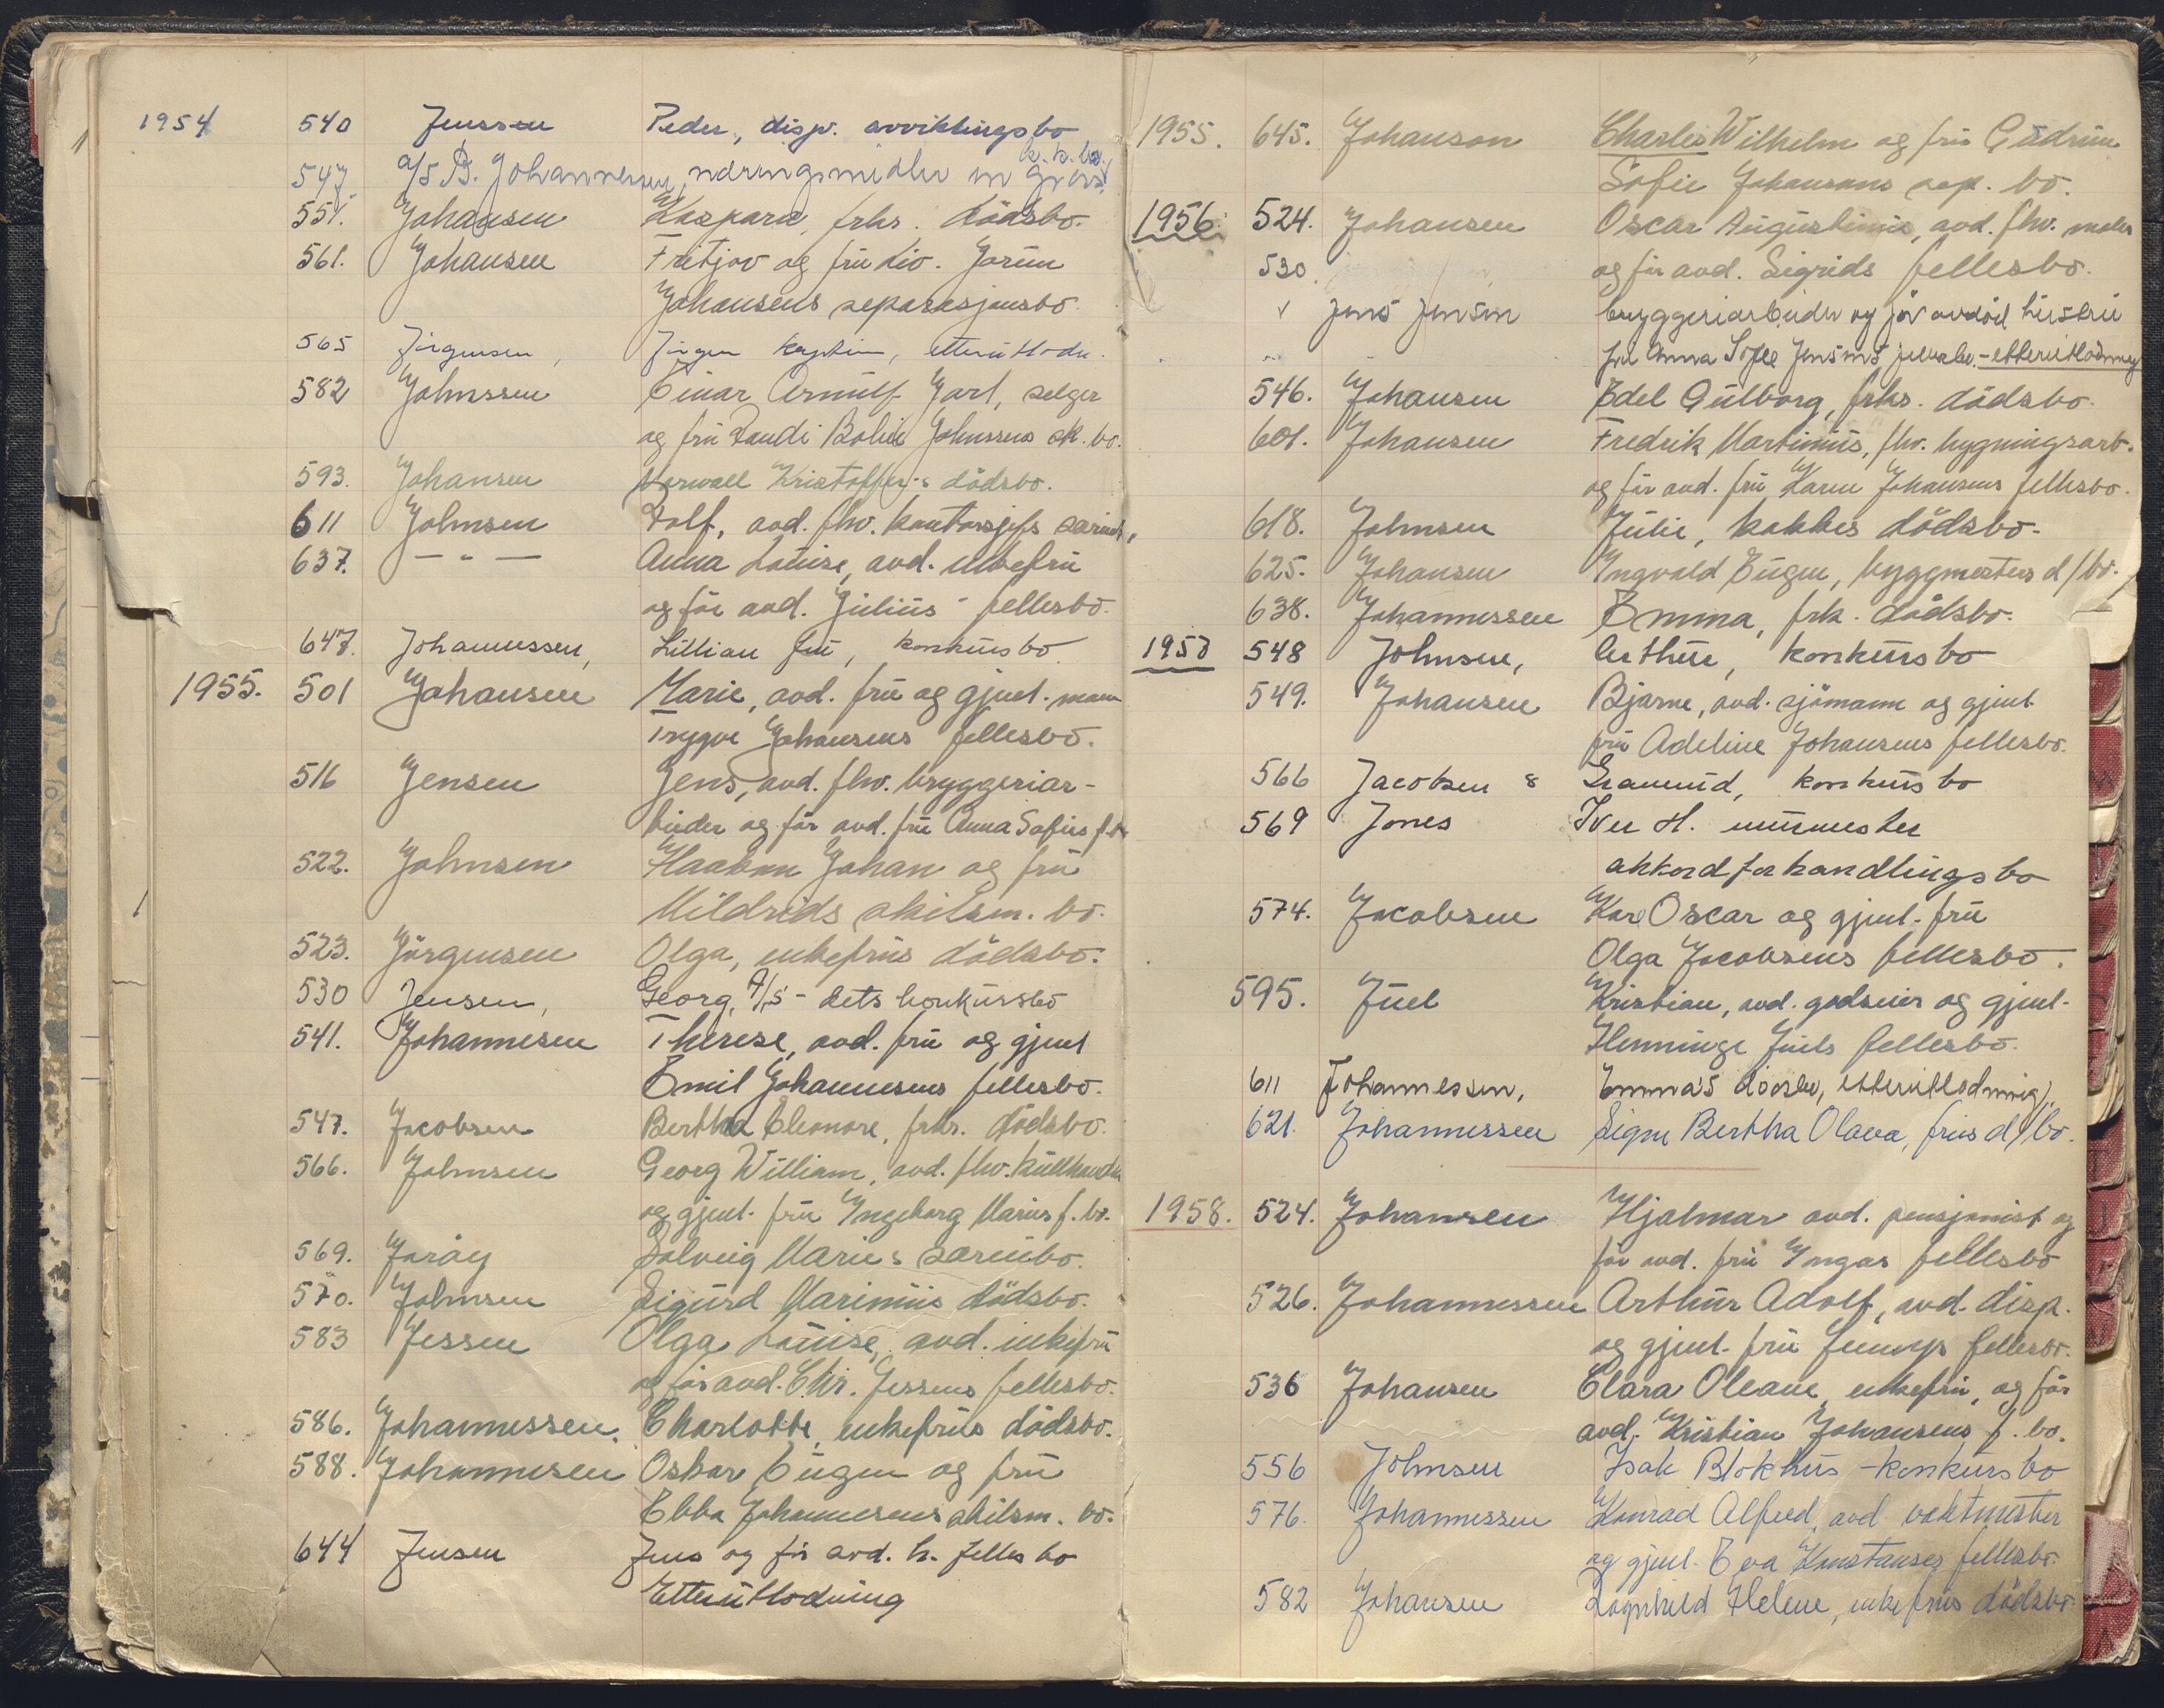 1954 540 Jenssen Peder, disp. avviklingsbo
k.k.bo.
547 a/s B. Johannessen, næringsmidler en gros
551. Johansen Kaspara, frks. dödsbo.
561. Johansen Fritjov og fru Liv. Jorun
Johansens separasjonsbo.
565 Jörgensen, Jörgen kaptein, etterutlodn.
582 Johnssen Einar Arnulf Jarl, selger
og fru Randi Bolie Johnssens sk. bo.
593. Johansen Norwall Kristoffer's dödsbo.
611 Johnsen Rolf, avd. fhv. kontorsjefs særeie,
637. — " — Anna Louise, avd. enkefru
og för avd. Julius' fellesbo.
647. Johannessen, Lillian fru, konkursbo
1955. 501 Johansen Marie, avd. fru og gjenl. mann
Trygve Johansens fellesbo.
516 Jensen Jens, avd. fhv. bryggeriar-
beider og för avd. fru Anna Sofies f.bo
522. Johnsen Haakon Johan og fru
Mildrids skilsm. bo.
523. Jörgensen Olga, enkefrus dödsbo.
530 Jensen, Georg, A/S - dets konkursbo
541. Johannesen Therese, avd. fru og gjenl
Emil Johannesens fellesbo.
547. Jacobsen Bertha Eleonore, frks. dödsbo.
566. Johnsen Georg William, avd. fhv. kullhandler
og gjenl. fru Ingeborg Maries f. bo.
569. Solveig Maries særeiebo.
570. Johnsen Sigurd Marinius dödsbo.
583 Jessen Olga Louise, avd. enkefru
og för avd. Chr. Jessens fellesbo.
586. Johannessen. Charlotte, enkefrus dödsbo.
588. Johannesen Oskar Eugen og fru
Ebba Johannesens skilsm. bo.
644 Jensen Jens og för avd. h. fellesbo
Etterutlodning
1955. 645. Johanson Charles Wilhelm og fru Gudrun
Sofie Johansons sep. bo.
1956. 524. Johansen Oscar Augustinius, avd. fhv. maler
og för avd. Sigrids fellesbo.
530
v Jens Jensen bryggeriarbeider og för avdöd hustru
fru Anna Sofie Jensens fellesbo - etterutlodning
546. Johansen Edel Gulborg, frks. dödsbo.
601. Johansen Fredrik Martinius, fhv. bygningsarb.
og för avd. fru Karen Johansens fellesbo.
618. Johnsen Julie, kokkes dödsbo.
625. Johansen Ingvald Eugen, byggmesters d/bo.
638. Johannessen Emma, frk. dödsbo.
1957 548 Johnsen, Arthur, konkursbo
549. Johansen Bjarne, avd. sjömann og gjenl
fru Adeline Johansens fellesbo.
566 Jacobsen & Gramrud, konkursbo
569 Jones Iver H. murmester
akkordforhandlingsbo
574. Jacobsen Kar Oscar og gjenl. fru
Olga Jacobsens fellesbo.
595. Juel Kristian, avd. godseier og gjenl.
Henninge Juels fellesbo.
611 Johannessen, Emma's dödsbo, etterutlodning.
621. Johannessen Signe Bertha Olava, frus d/bo.
1958. 524. Johansen Hjalmar avd. pensjonist og
för avd. fru Yngas fellesbo
526. Johannessen Arthur Adolf, avd. disp.
og gjenl. fru Jennys fellesbo.
536 Johansen Clara Oleane, enkefru, og för
avd. Kristian Johansens f. bo.
556 Johnsen Isak Blokhus - konkursbo
576. Johannessen Konrad Alfred, avd vaktmester
og gjenl. Eva Konstanses fellesbo.
582 Johansen Ragnhild Helene, enkefrus dödsbo